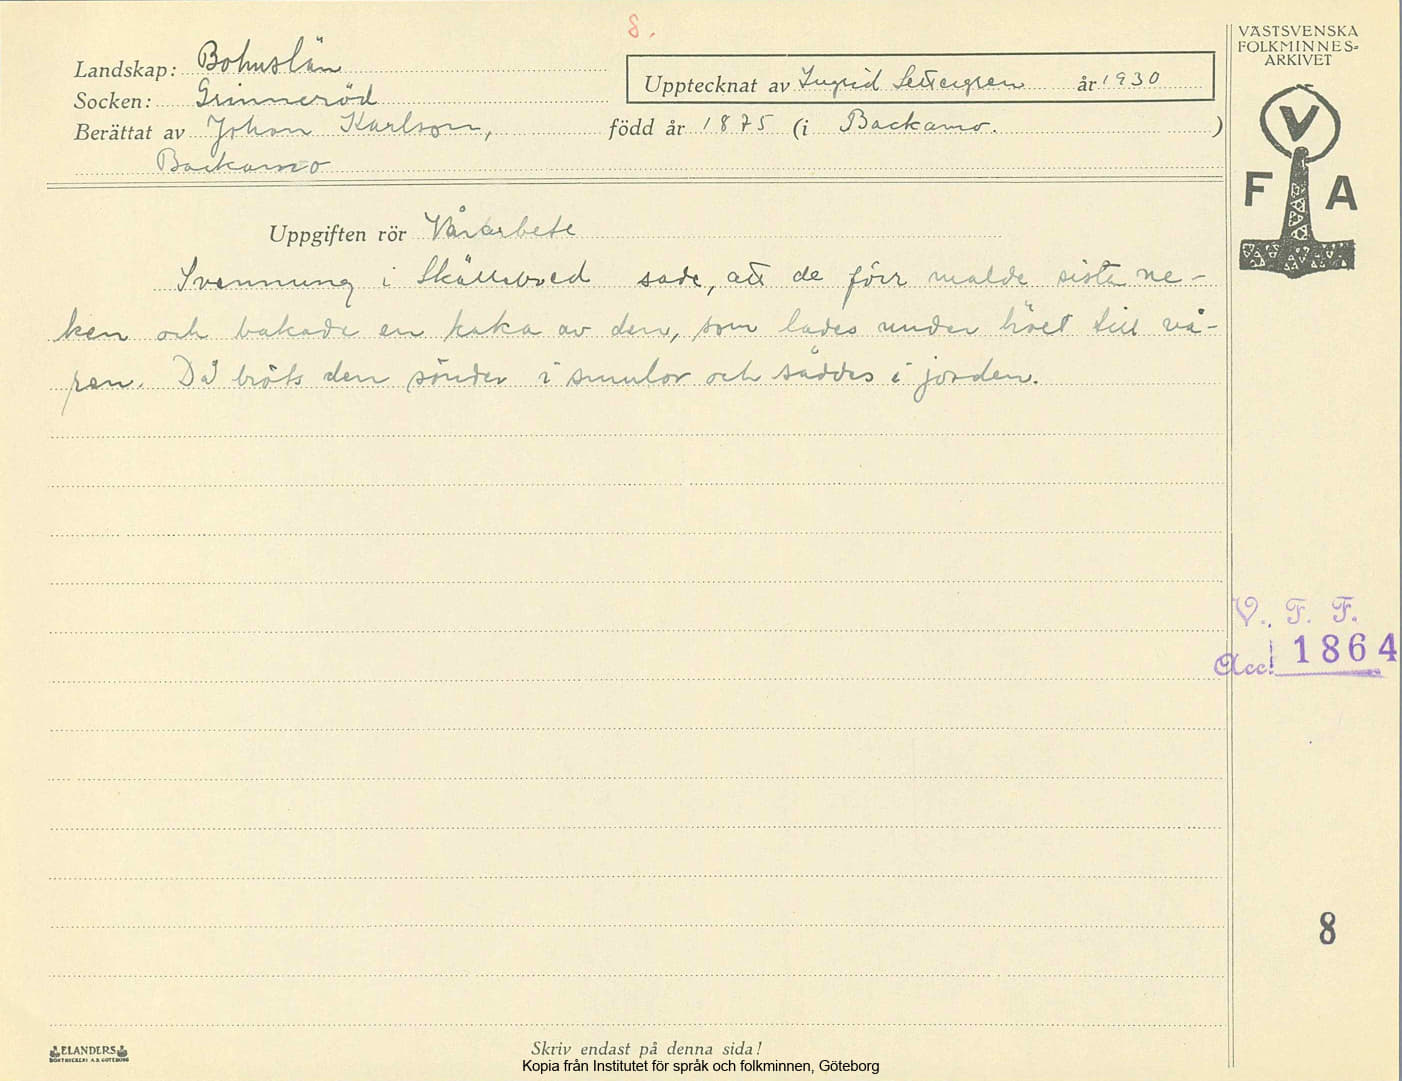 8.
VÄSTSVENSKA
FOLKMINNES-
ARKIVET
Landskap: Bohuslän
Upptecknat av Ingrid Settergren år 1930
Socken: Grinneröd
Berättat av Johan Karlson, född år 1875 (i Backamo.)
Backamo
V
F A
Uppgiften rör Vårarbete
Svennung i Skällsbred sade, att de förr malde sista ne-
ken och bakade en kaka av den, som lades under höet till vå-
ren. Då bröts den sönder i smulor och såddes i jorden.
V. F. F.
Acc. 1864
8
ELANDERS
BOKTRYCKERI A.B. GÖTEBORG
Skriv endast på denna sida!
Kopia från Institutet för språk och folkminnen, Göteborg